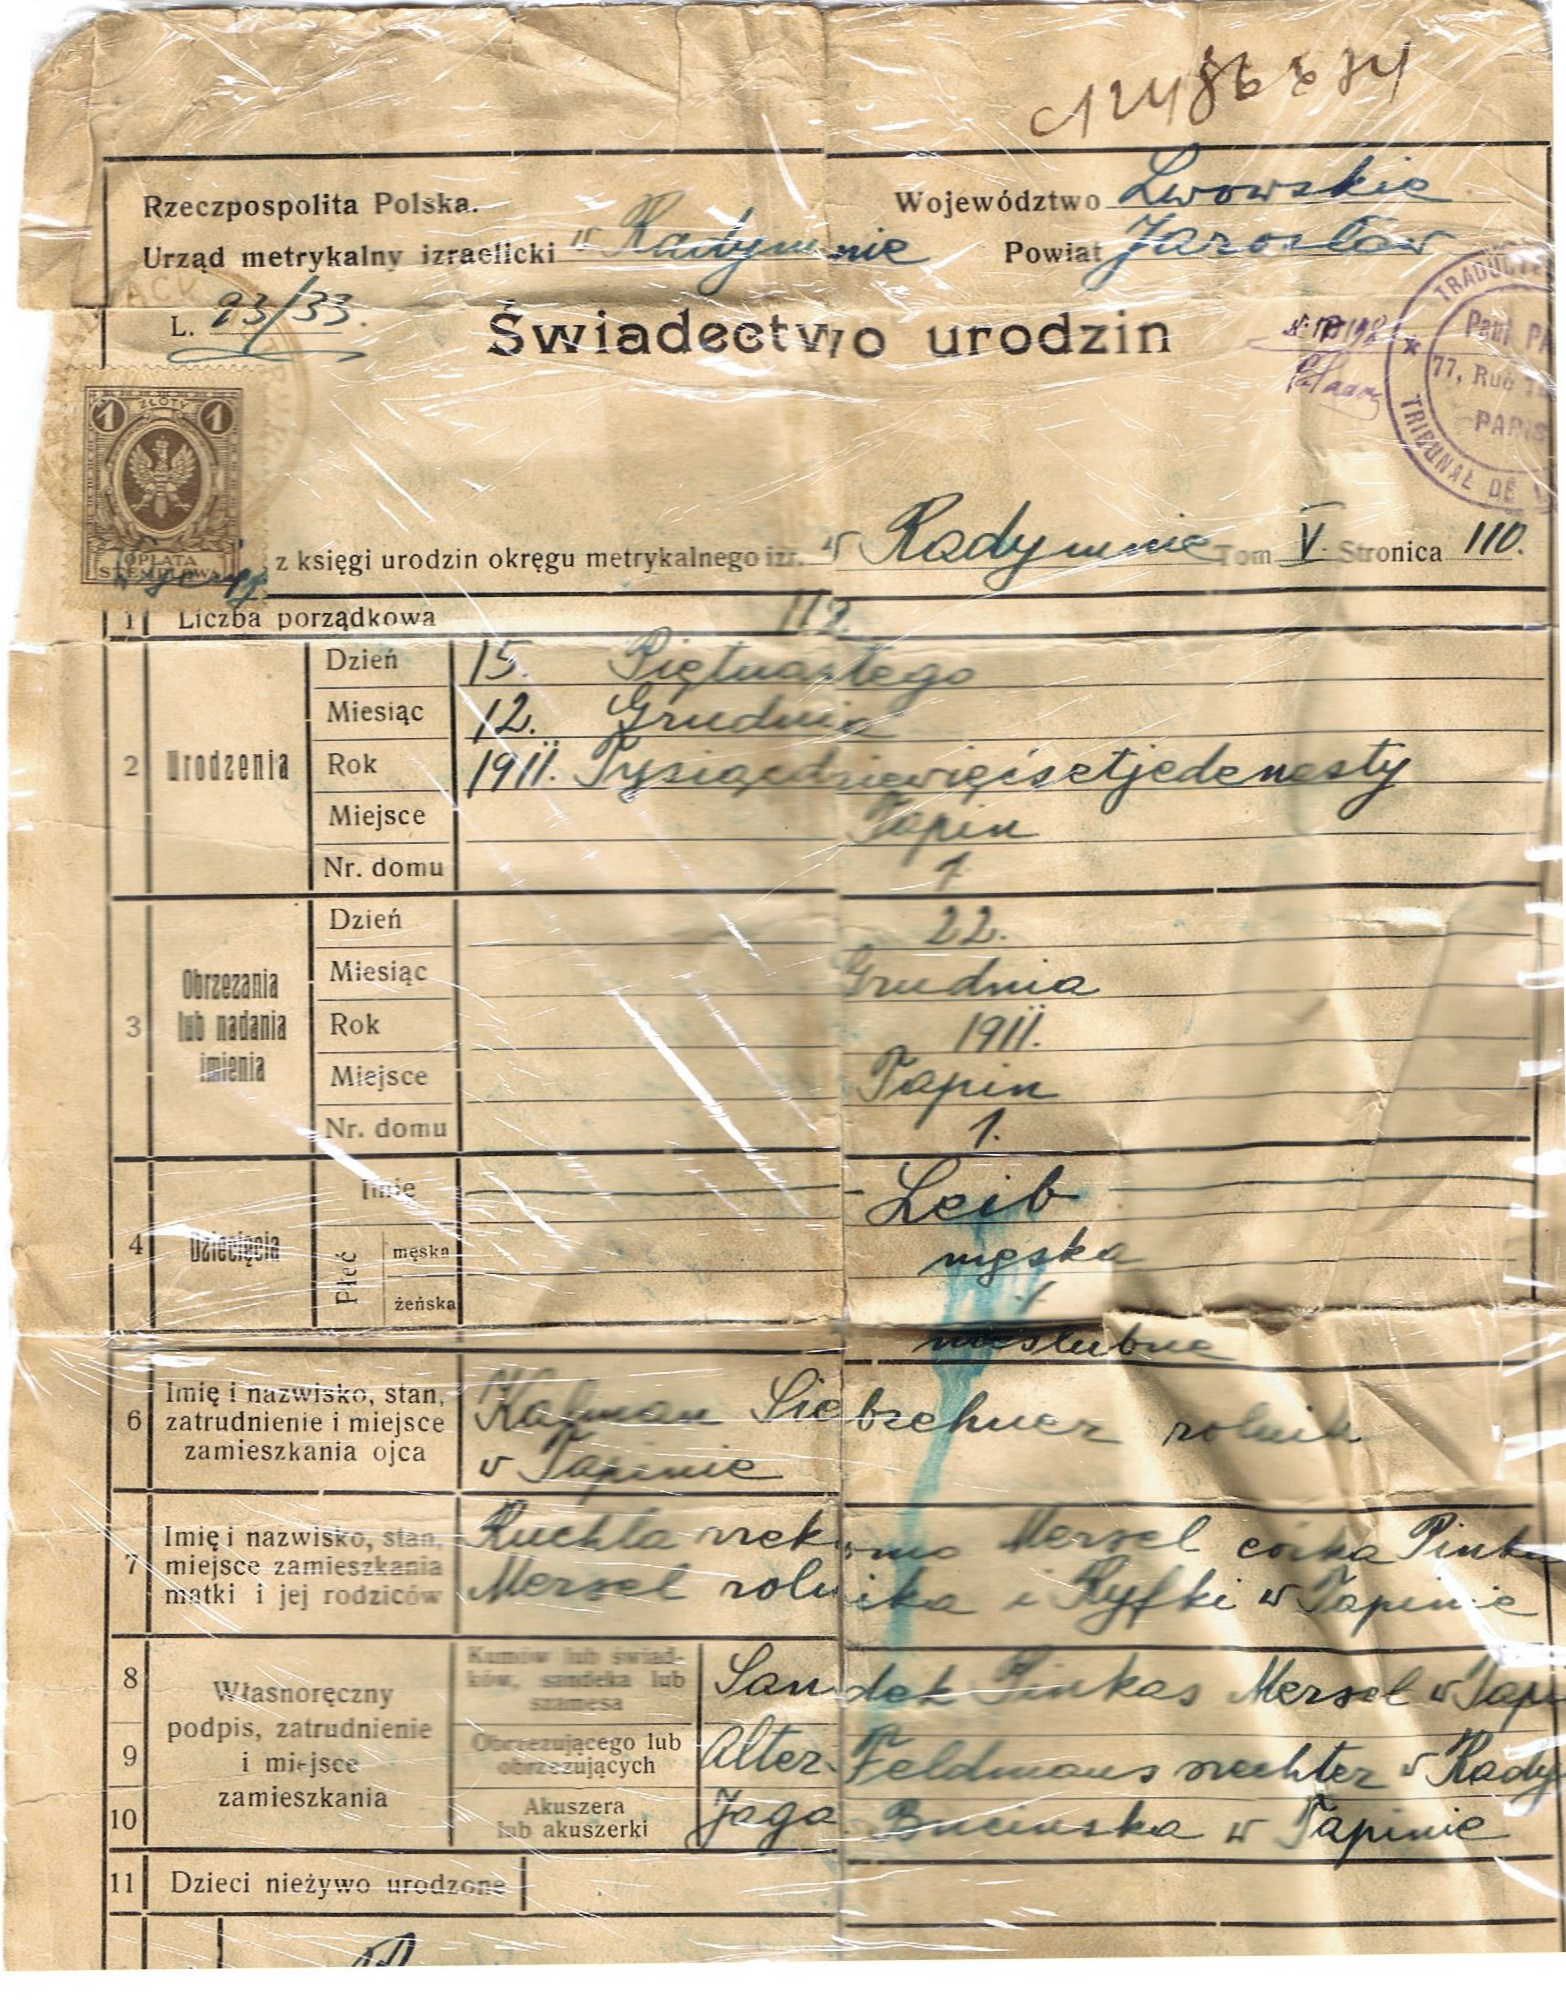 Rzeczpospolita Polska.
Województwo Lwowskie
Urząd metrykalny izraelicki w Radymnie
Powiat Jarosław
L. 93/33.
Świadectwo urodzin
TRADUCTE
Paul PA
77, Rue
PARIS
TRIBUNAL DE
1 ZŁOTY 1
OPŁATA
STEMPLOWA
z księgi urodzin okręgu metrykalnego izr. w Radymnie Tom V. Stronica 110.
1 Liczba porządkowa 112.
2 Urodzenia
Dzień 15. Piętnastego
Miesiąc 12. Grudnia
Rok 1911. Tysiącdziewięćsetjedenasty
Miejsce Tapin
Nr. domu 1.
3 Obrzezania lub nadania imienia
Dzień 22.
Miesiąc Grudnia
Rok 1911.
Miejsce Tapin
Nr. domu 1.
4 Dziecięcia
Imię Leib
Płeć męska męska
żeńska
nieślubne
6 Imię i nazwisko, stan, Kalman Siebzehner rolnik
zatrudnienie i miejsce
zamieszkania ojca w Tapinie
7 Imię i nazwisko, stan, Ruchla rzekomo Mersel córka Pink
miejsce zamieszkania
matki i jej rodziców Mersel rolnika i Ryfki w Tapinie
8 Własnoręczny podpis, zatrudnienie i miejsce zamieszkania
Kumów lub świad-
ków, sandeka lub
szamesa
Sandek Pinkas Mersel w Tapi
9 Obrzezującego lub
obrzezujących
Alter Feldmaus rzechter w Rady
10 Akuszera
lub akuszerki
Jaga w Tapinie
11 Dzieci nieżywo urodzone